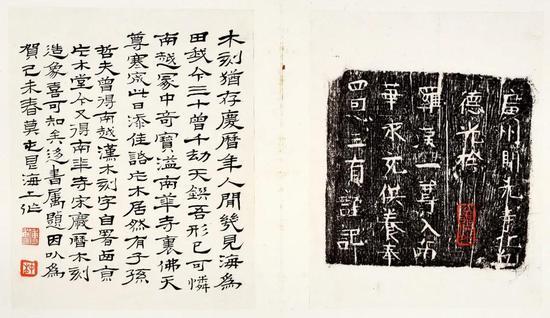 廣州
德光捨
羅漢一尊入南
華永充供養奉
四恩三有謹記
木刻猶存慶曆年人間幾見海為
田我今三十曾千劫天吾形已可憐
南越冢中奇寶溢南華寺裏佛天
尊寒齋此日添佳話木居然有子孫
哲夫曾得南越漢木刻字自署西京
木堂今又得南華寺宋慶曆木刻
造象喜可知矣迻書屬題因以為
賀己未春莫屯艮海上作